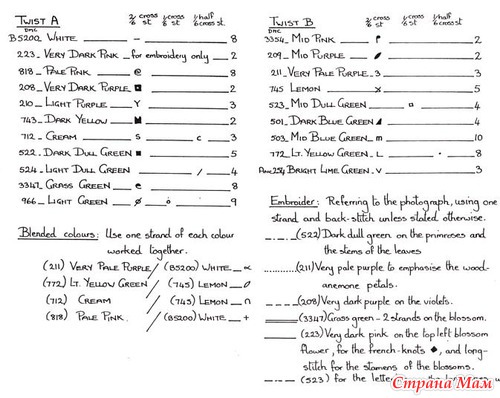 TWIST A
DMC
2/ cross st
1/ cross st
1/ half cross st.
B5200 WHITE – 8
223 – VERY DARK PINK – for embroidery only – 2
818 – PALE PINK – @ – 8
208 – VERY DARK PURPLE – 2
210 – LIGHT PURPLE – Y – 3
743 – DARK YELLOW – 2
712 – CREAM – s c – 3
522 – DARK DULL GREEN – 5
524 – LIGHT DULL GREEN – / – 4
3347 – GRASS GREEN – e – 8
966 – LIGHT GREEN – ø – 9
Blended colours: Use one strand of each colour
worked together.
(211) VERY PALE PURPLE / (B5200) WHITE – ∝
(772) LT. YELLOW GREEN / (745) LEMON – 0
(712) CREAM / (745) LEMON – ∩
(818) PALE PINK / (B5200) WHITE – +
TWIST B
DMC
2/ cross st
1/ cross st
1/ half cross st.
3354 – MID PINK – 2
209 – MID PURPLE – 2
211 – VERY PALE PURPLE – 3 – 3
745 LEMON – x – 5
523 – MID DULL GREEN – 4
501 – DARK BLUE GREEN – 4
503 – MID BLUE GREEN – m – 10
772 – LT. YELLOW GREEN – L – 8
BRIGHT LIME GREEN – v – 3
Embroider: Referring to the photograph, using one
strand and back-stitch unless stated otherwise.
(522) Dark dull green on the primroses and
the stems of the leaves
(211) Very pale purple to emphasise the wood-
anemone petals.
(208) Very dark purple on the violets.
(3347) Grass green – 2 strands on the blossom.
(223) Very dark pink on the top left blossom
flower, for the french-knots ◆, and long-
stitch for the stamens of the blossoms.
(523) for the
Страна Мам